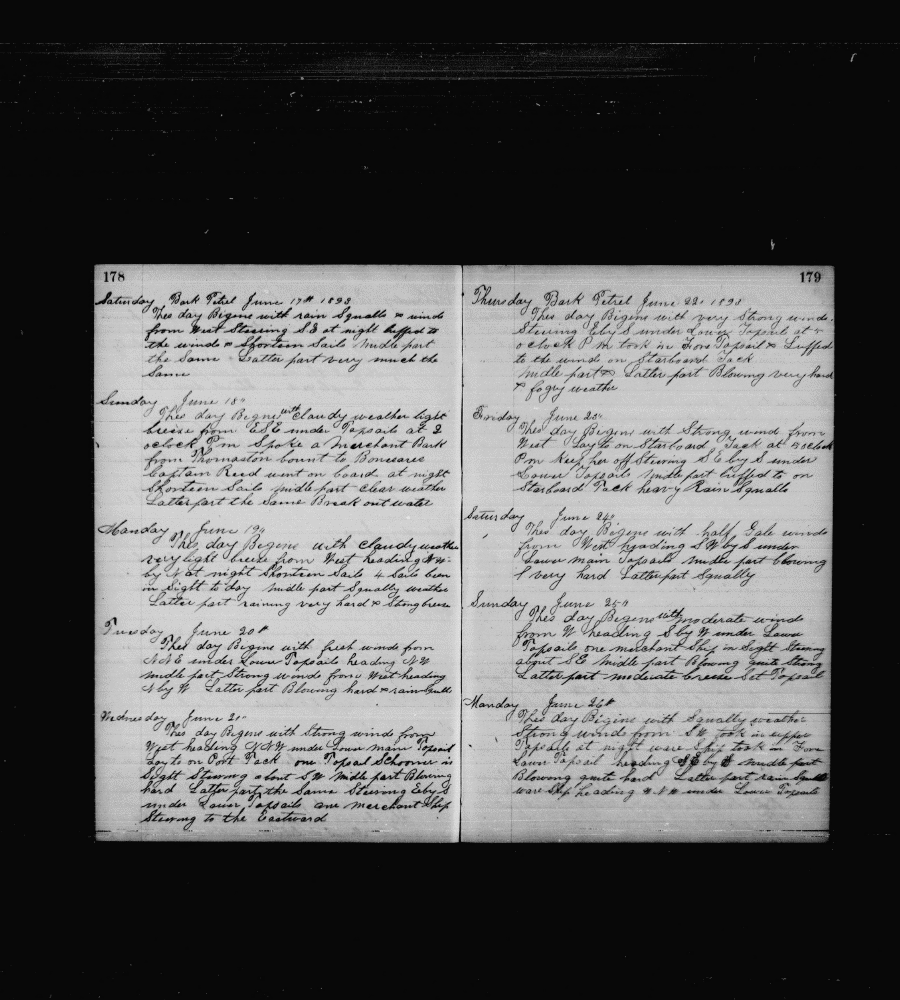 178
Saturday Bark Petrel June 17th 1893
This day Begins with rain Squalls & wind
from West Steering SE at night luffed to
the wind & Shorteen Sails Midle part
the Same Latter part very much the
Same
Sunday June 18"
This day Begins with Claudy weather light
breeze from ESE under Topsails at 2
oclock Pm Spoke a Merchant Bark
from Thomaston bount to
Captain Reed went on board at night
Shorteen Sails midle part Clear weather
Latter part the Same Break out water
Monday June 19"
This day Begens with Claudy weather
very light breeze from West heading NW
by N at night Shorteen Sails 4 Sails been
in Sight to day midle part Squally weather
Latter part raining very hard & Stong breese
Tuesday June 20th
This day Begins with fresh wind from
NNE under Lower Topsails heading NW
midle part Strong winds from West heading
N by W Latter part Blowing hard & rain Squalls
Wednesday June 21"
This day Begins with Strong winds from
West heading NNW under Lower main Topsail
Lay to on Port Tack one Topsail Schooner in
Sight Steering about SW midle part Blowing
hard Latter part the Same Steering E by S
under Lower Topsails one merchant Ship
Steering to the Eastward
179
Thursday Bark Petrel June 22" 1893
This day Bigins with very Strong winds
Steering E by S under Lower Topsail at
oclock P M took in Fore Topsail & Luffed
to the wind on Starboard Tack
Midle part & Latter part Blowing very hard
& fogry weathe
Friday June 23"
This day Begins with Strong wind from
West Lay to on Starboard Tack at 5 oclock
Pm keep her off Steering SE by S under
Lower Topsails Midle part luffed to on
Starboard Tack heavy Rain Squalls
Saturday June 24"
This day Bigins with half Gale winds
from West heading SW by S under
Lower main Topsails Midle part blowing
very hard Latter part Squally
Sunday June 25"
This day Begins with moderate winds
from W heading S by W under Lower
Topsails one merchant Ship in Sight Steering
about SE Midle part Blowing quite Strong
Latter part moderate breese Set Topsail
Monday June 26th
This day Bigins with Squally weather
Strong winds from SW took in upper
Topsails at night ware Ship took in Fore
Lower Topsail heading by Midle part
Blowing quite hard Latter part rain Squalls
ware Ship heading under Lower Topsails